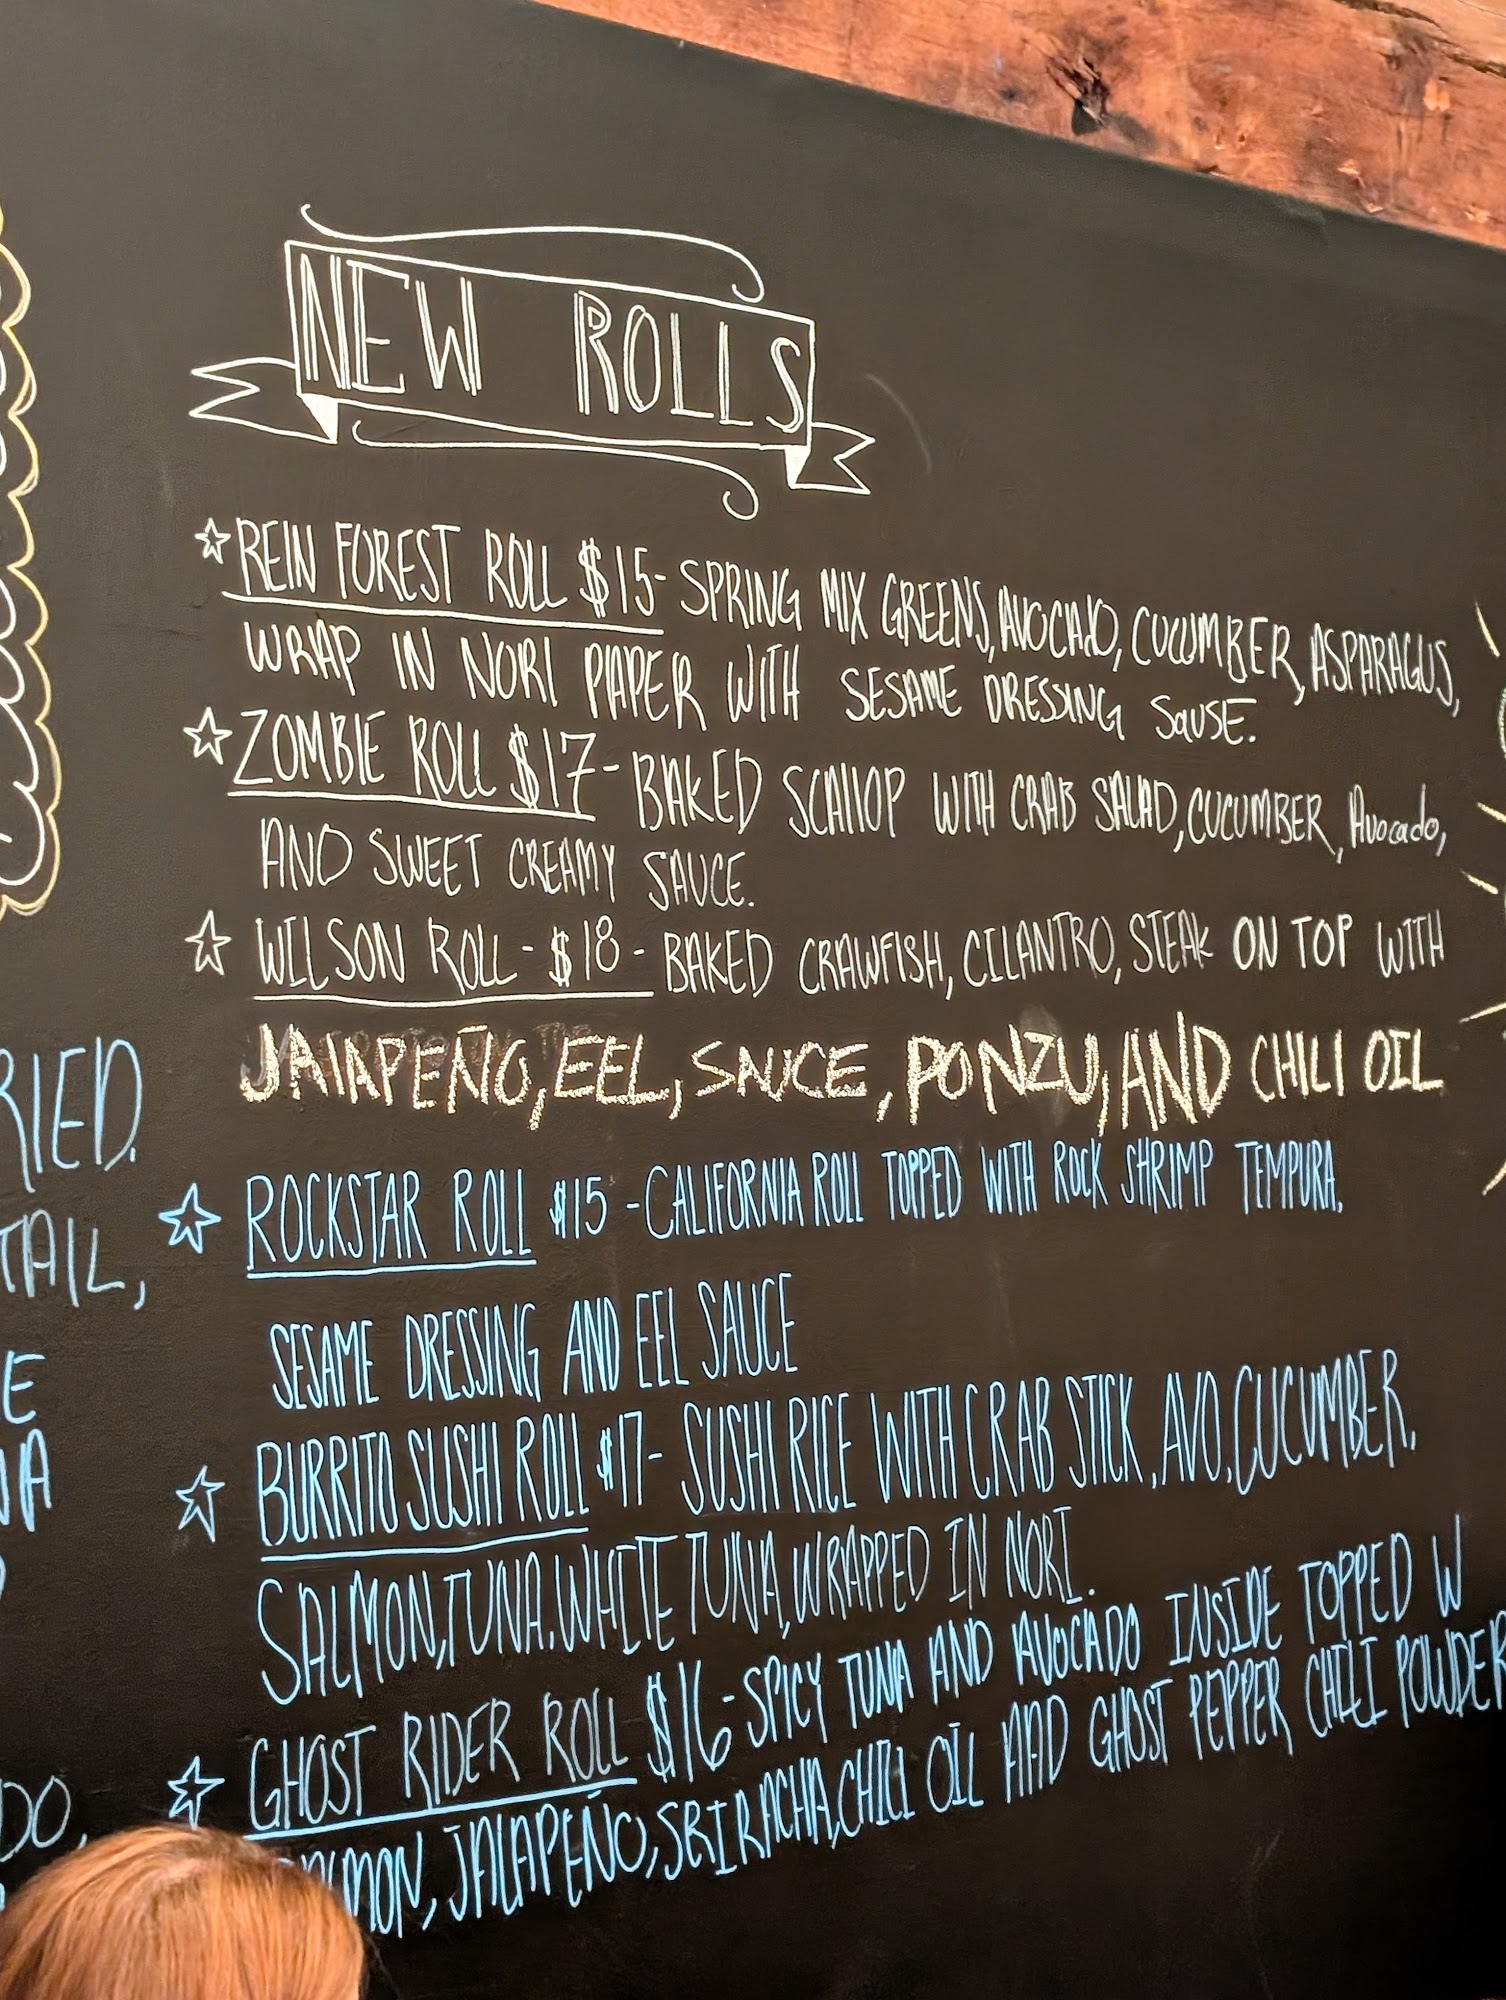 NEW ROLLS
REIN FOREST ROLL $15- SPRING MIX GREENS, AVOCADO, CUCUMBER, ASPARAGUS,
WRAP IN NORI PAPER WITH SESAME DRESSING SAUSE.
ZOMBIE ROLL $17- BAKED SCALLOP WITH CRAB SALAD, CUCUMBER, Avocado,
AND SWEET CREAMY SAUCE.
WILSON ROLL - $18 - BAKED CRAWFISH, CILANTRO, STEAK ON TOP WITH
JALAPEÑO, EEL, SAUCE, PONZU, AND CHILI OIL
RIED.
ROCKSTAR ROLL $15 - CALIFORNIA ROLL TOPPED WITH ROCK SHRIMP TEMPURA,
TAIL,
SESAME DRESSING AND EEL SAUCE
E
BURRITO SUSHI ROLL $17- SUSHI RICE WITH CRAB STICK, AVO, CUCUMBER,
SALMON, TUNA, WHITE TUNA, WRAPPED IN NORI.
GHOST RIDER ROLL $16 - SPICY TUNA AND AVOCADO INSIDE TOPPED W
DO,
LMON, JALAPEÑO, SRIRACHA, CHILI OIL AND GHOST PEPPER CHILI POWDER